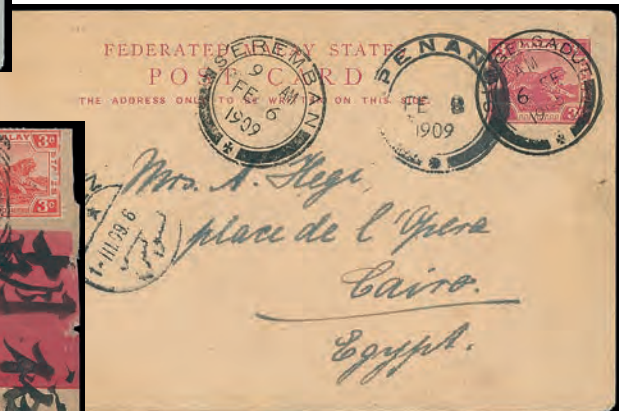 FEDERATED MALAY STATES
POST CARD
THE ADDRESS ONLY TO BE WRITTEN ON THIS SIDE.
SEREMBAN
9 AM
FE 6
1909
PENANG
FE 8
1909
SUNGEI GADUT
AM
FE
6
MALAY
3c
Mrs. A. Hegi,
place de l'Opera
Cairo.
Egypt.
1-III.09.6